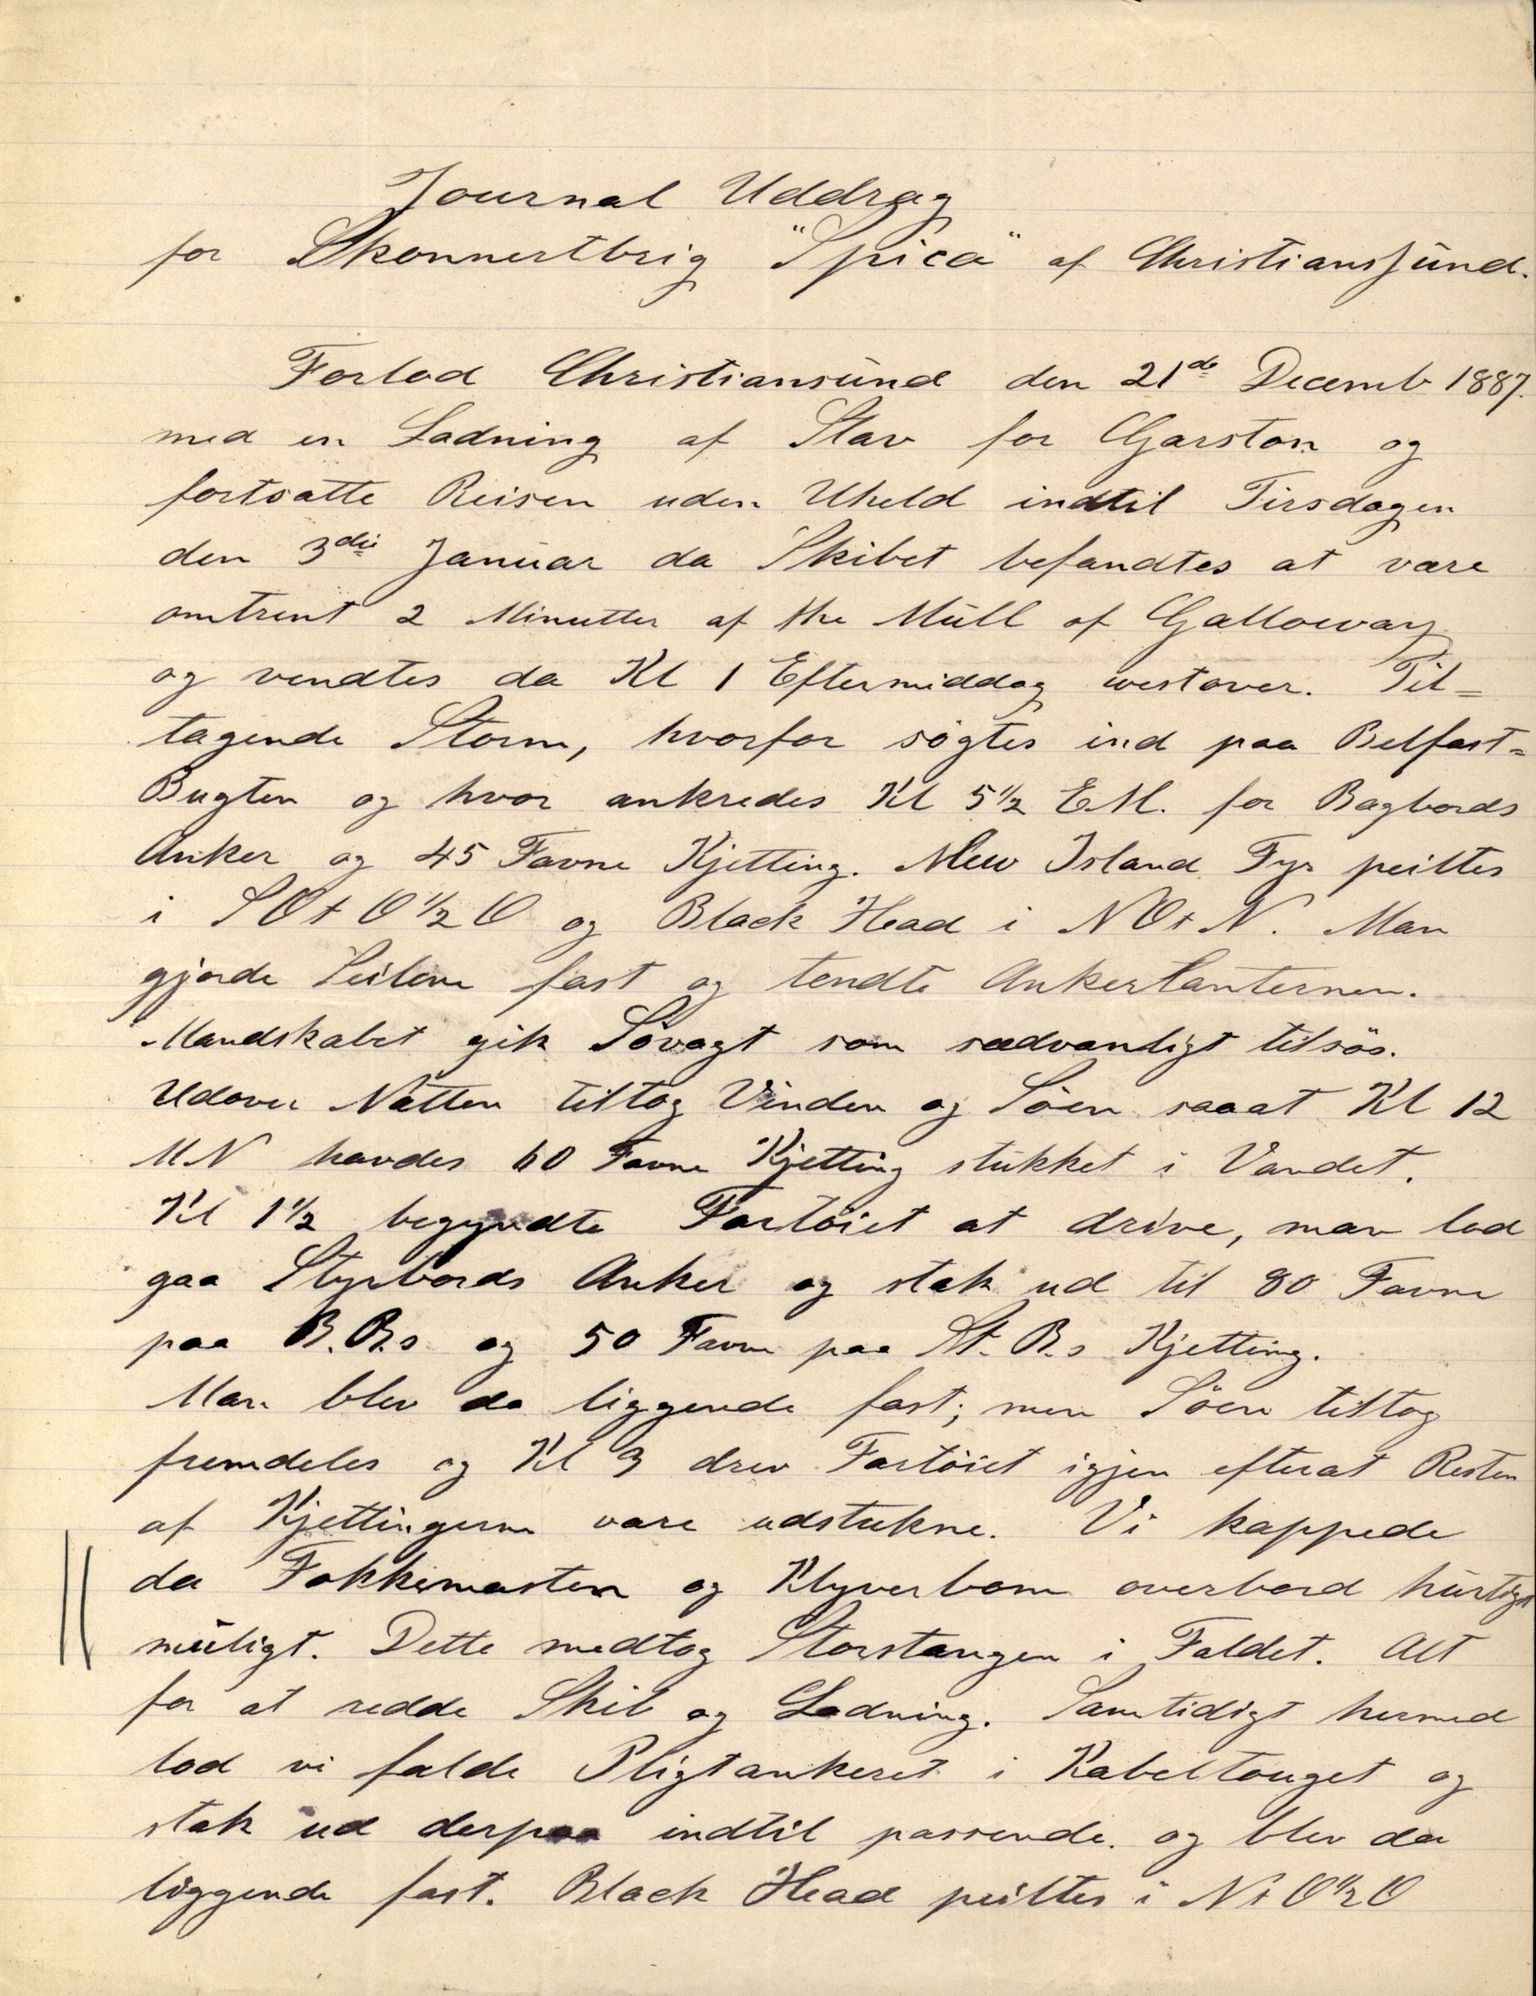 Journal Uddrag
for Skonnertbrig "Spica" af Christianssund.
Forlod Christiansund den 21de Decemb 1887.
med en Ladning af Stav for Garston og
fortsatte Reisen uden Uheld indtil Tirsdagen
den 3die Januar da Skibet befandtes at være
omtrent 2 Minutter af the Mull of Galloway
og vendtes da Kl 1 Eftermiddag vestover. Til=
tagende Storm, hvorfor søgtes ind paa Belfast=
Bugten og hvor ankredes Kl 5 1/2 E.M. for Bagbords
Anker og 45 Favne Kjetting. Mew Island Fyr peiltes
i SO t O 1/2 O og Black Head i NO t N. Man
gjorde Seilene fast og tendte Ankerlanternen.
Mandskabet gik Søvagt som sædvanligt tilsøs.
Udover Natten tiltog Vinden og Søen saaat Kl 12
MN havdes 60 Favne Kjetting stukket i Vandet.
Kl 1 1/2 begyndte Fartøiet at drive, man lod
gaa Styrbords Anker og stak ud til 80 Favne
paa B.B.s og 50 Favne paa St. B.s Kjetting.
Man blev da liggende fast; men Søen tiltog
fremdeles og Kl 3 drev Fartøiet igjen efterat Resten
af Kjettingerne vare udstukne. Vi kappede
da Fokkemasten og Klyverbom overbord hurtigst
muligt. Dette medtog Storstangen i Faldet. Alt
for at redde Skib og Ladning. Samtidigt hermed
lod vi falde Pligtankeret i Kabeltouget og
stak ud derpaa indtil passende og blev da
liggende fast. Black Head peiltes i N t O 1/2 O